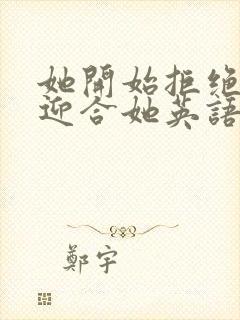 她開始拒絕
迎合她英語
鄭宇